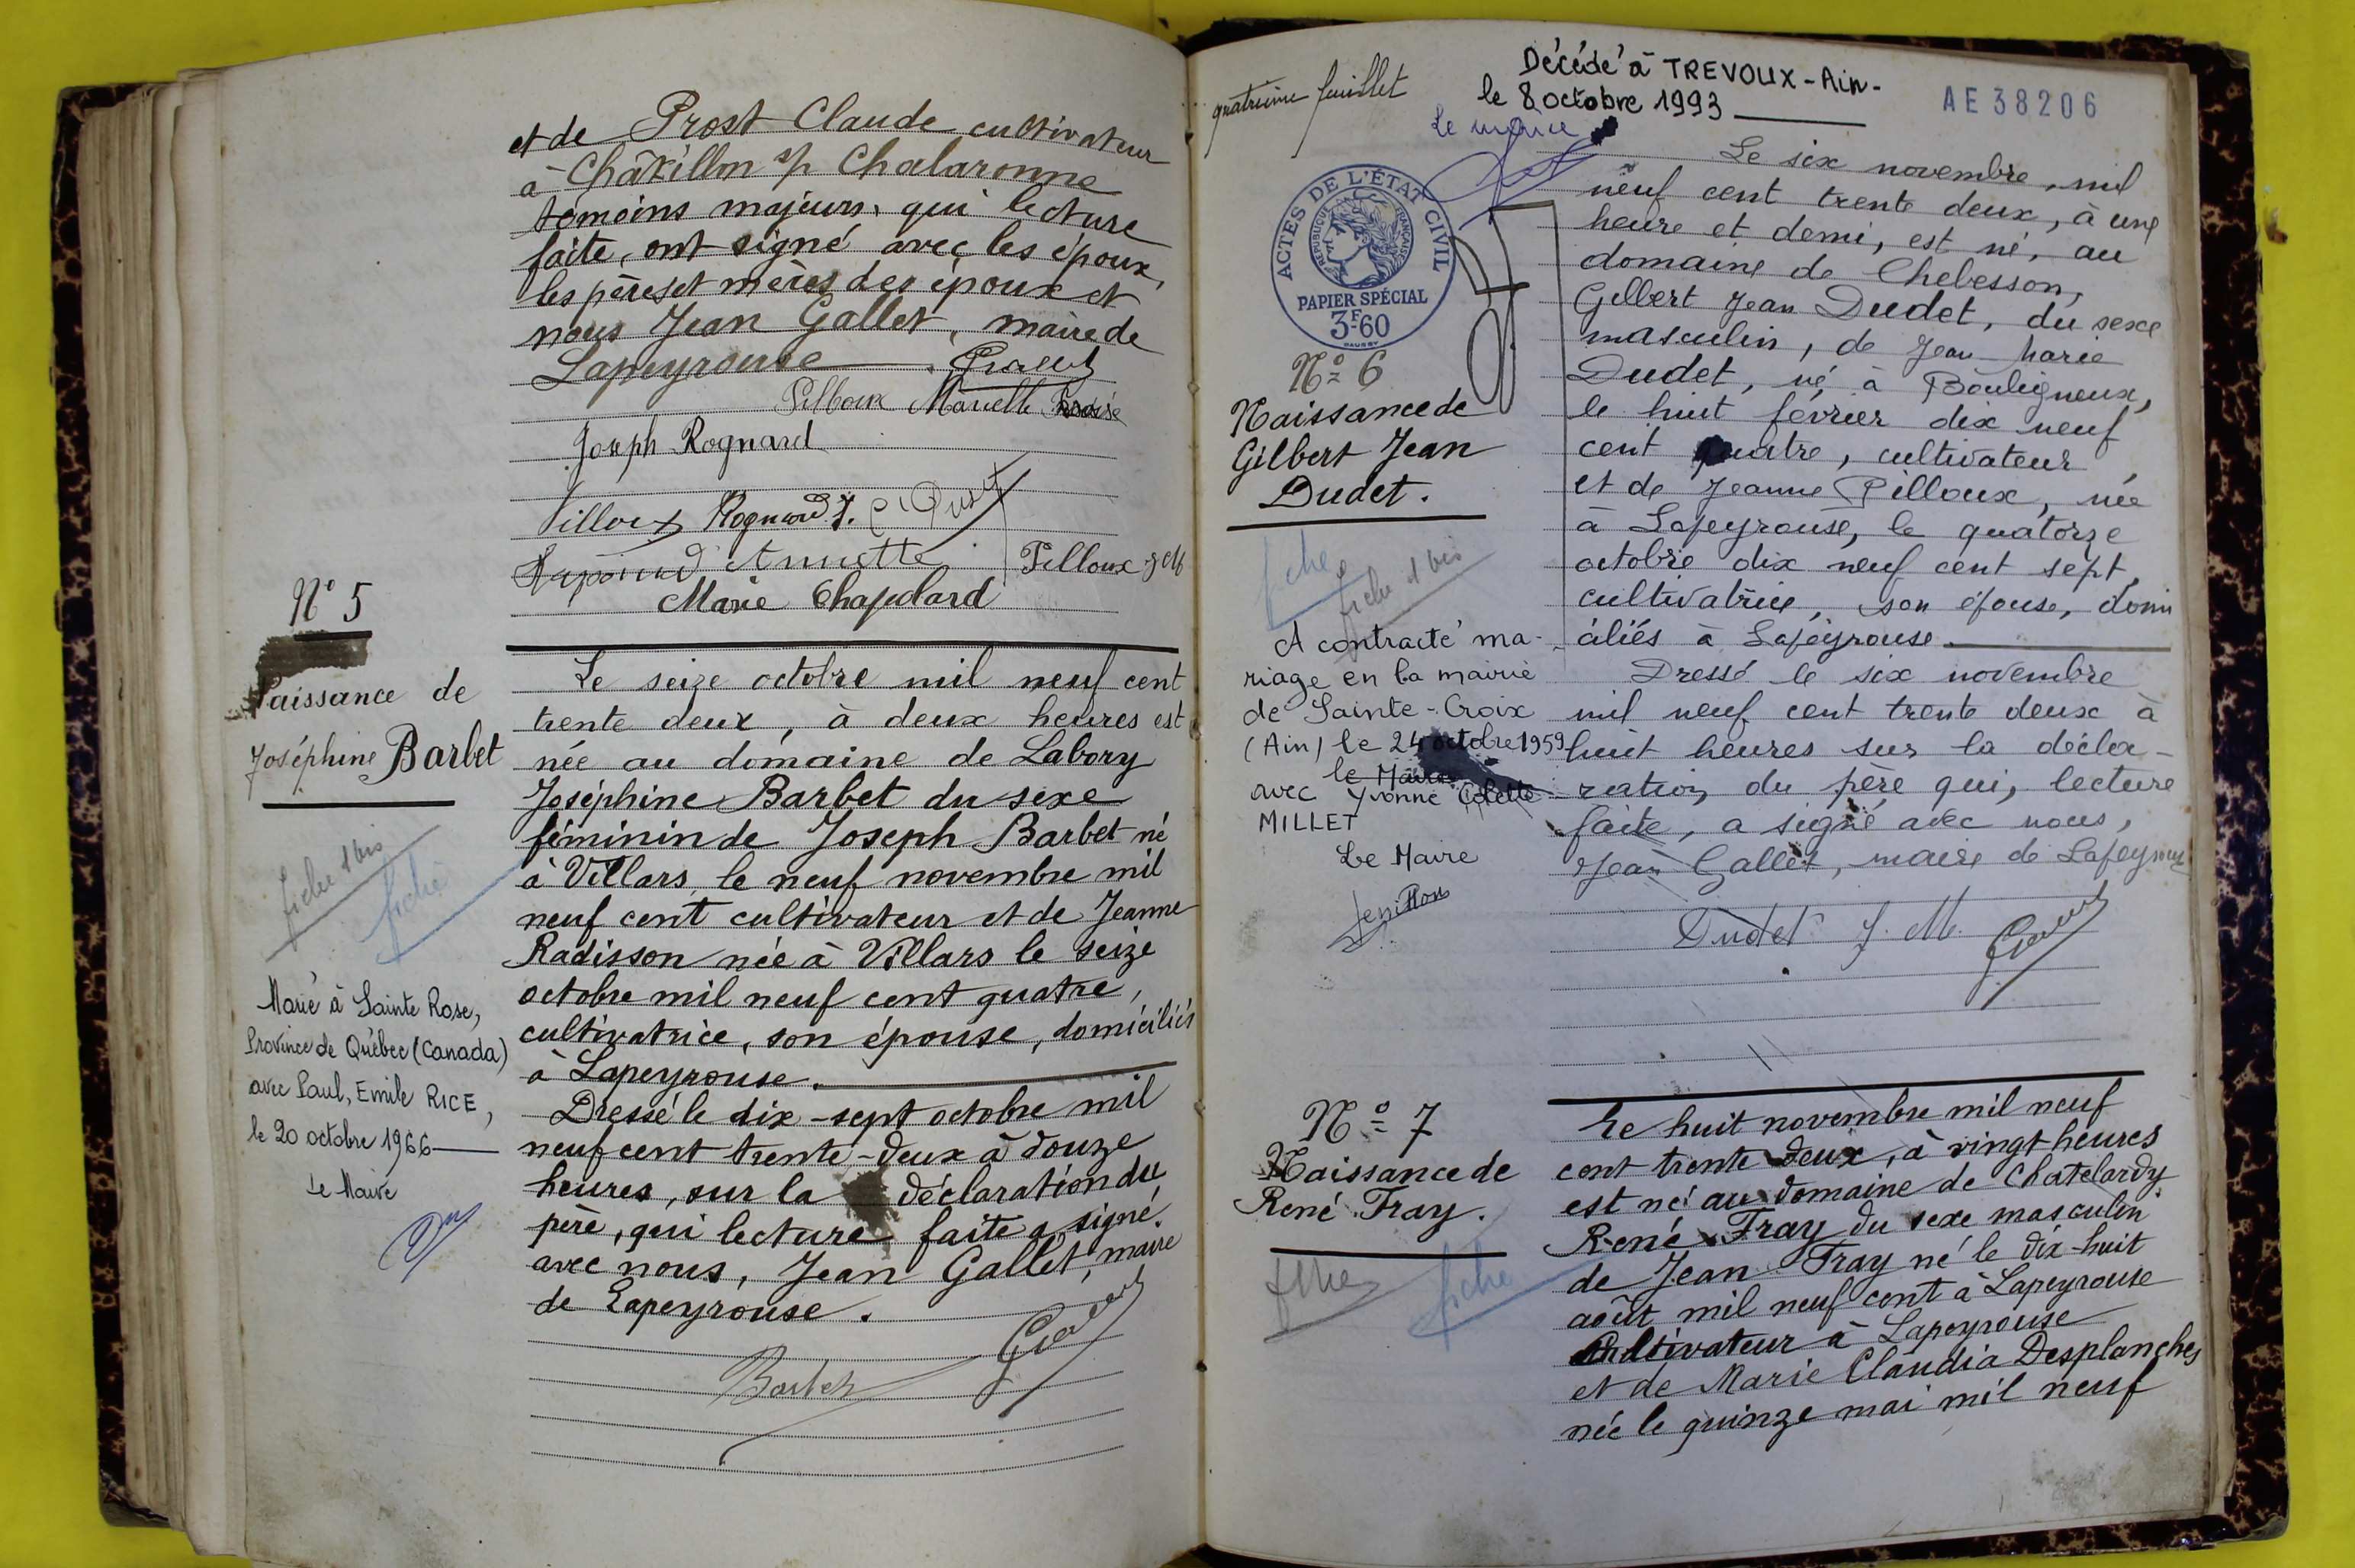 et de Prost Claude cultivateur
à Châtillon s/ Chalaronne
témoins majeurs, qui lecture
faite, ont signé avec les époux,
les pères et mères des époux et
nous Jean Gallet, maire de
Lapeyrouse
Pilloux Marielle
Joseph Rognard
Pilloux Rognard J.
Annette Pilloux J M
Marie Chapelard
N° 5
Naissance de
Joséphine Barbet
fiche 1 bis
fiche
Marié à Sainte Rose,
Province de Québec (Canada)
avec Paul, Emile RICE,
le 20 octobre 1966
Le Maire
Le seize octobre mil neuf cent
trente deux, à deux heures est
née au domaine de Labory
Joséphine Barbet du sexe
féminin de Joseph Barbet né
à Villars le neuf novembre mil
neuf cent cultivateur et de Jeanne
Radisson née à Villars le seize
octobre mil neuf cent quatre,
cultivatrice, son épouse, domiciliés
à Lapeyrouse.
Dressé le dix-sept octobre mil
neuf cent trente-deux à douze
heures, sur la déclaration du
père, qui lecture faite a signé
avec nous, Jean Gallet, maire
de Lapeyrouse.
Barbet
quatrième feuillet
Décédé à TREVOUX-Ain-
le 8 octobre 1993
Le maire
AE38206
ACTES DE L'ÉTAT CIVIL
RÉPUBLIQUE FRANÇAISE
PAPIER SPÉCIAL
3F60
N° 6
Naissance de
Gilbert Jean
Dudet.
fiche
fiche 1 bis
A contracté ma-
riage en la mairie
de Sainte-Croix
(Ain) le 24 octobre 1959
le Maire
avec Yvonne Colette
MILLET
Le Maire
Le six novembre, mil
neuf cent trente deux, à une
heure et demi, est né, au
domaine de Chebesson,
Gilbert Jean Dudet, du sexe
masculin, de Jean Marie
Dudet, né à Bouligneux,
le huit février dix neuf
cent quatre, cultivateur,
et de Jeanne Pilloux, née
à Lapeyrouse, le quatorze
octobre dix neuf cent sept,
cultivatrice, son épouse, domi
ciliés à Lapeyrouse
Dressé le six novembre
mil neuf cent trente deux à
huit heures sur la décla-
ration du père qui, lecture
faite, a signé avec nous,
Jean Gallet, maire de Lapeyrouse
Dudet J. M.
N° 7
Naissance de
René Fray.
fiche
fiche
Le huit novembre mil neuf
cent trente deux, à vingt heures
est né au domaine de Chatelardy
René Fray du sexe masculin
de Jean Fray né le dix-huit
août mil neuf cent à Lapeyrouse
Cultivateur à Lapeyrouse
et de Marie Claudia Desplanches
née le quinze mai mil neuf